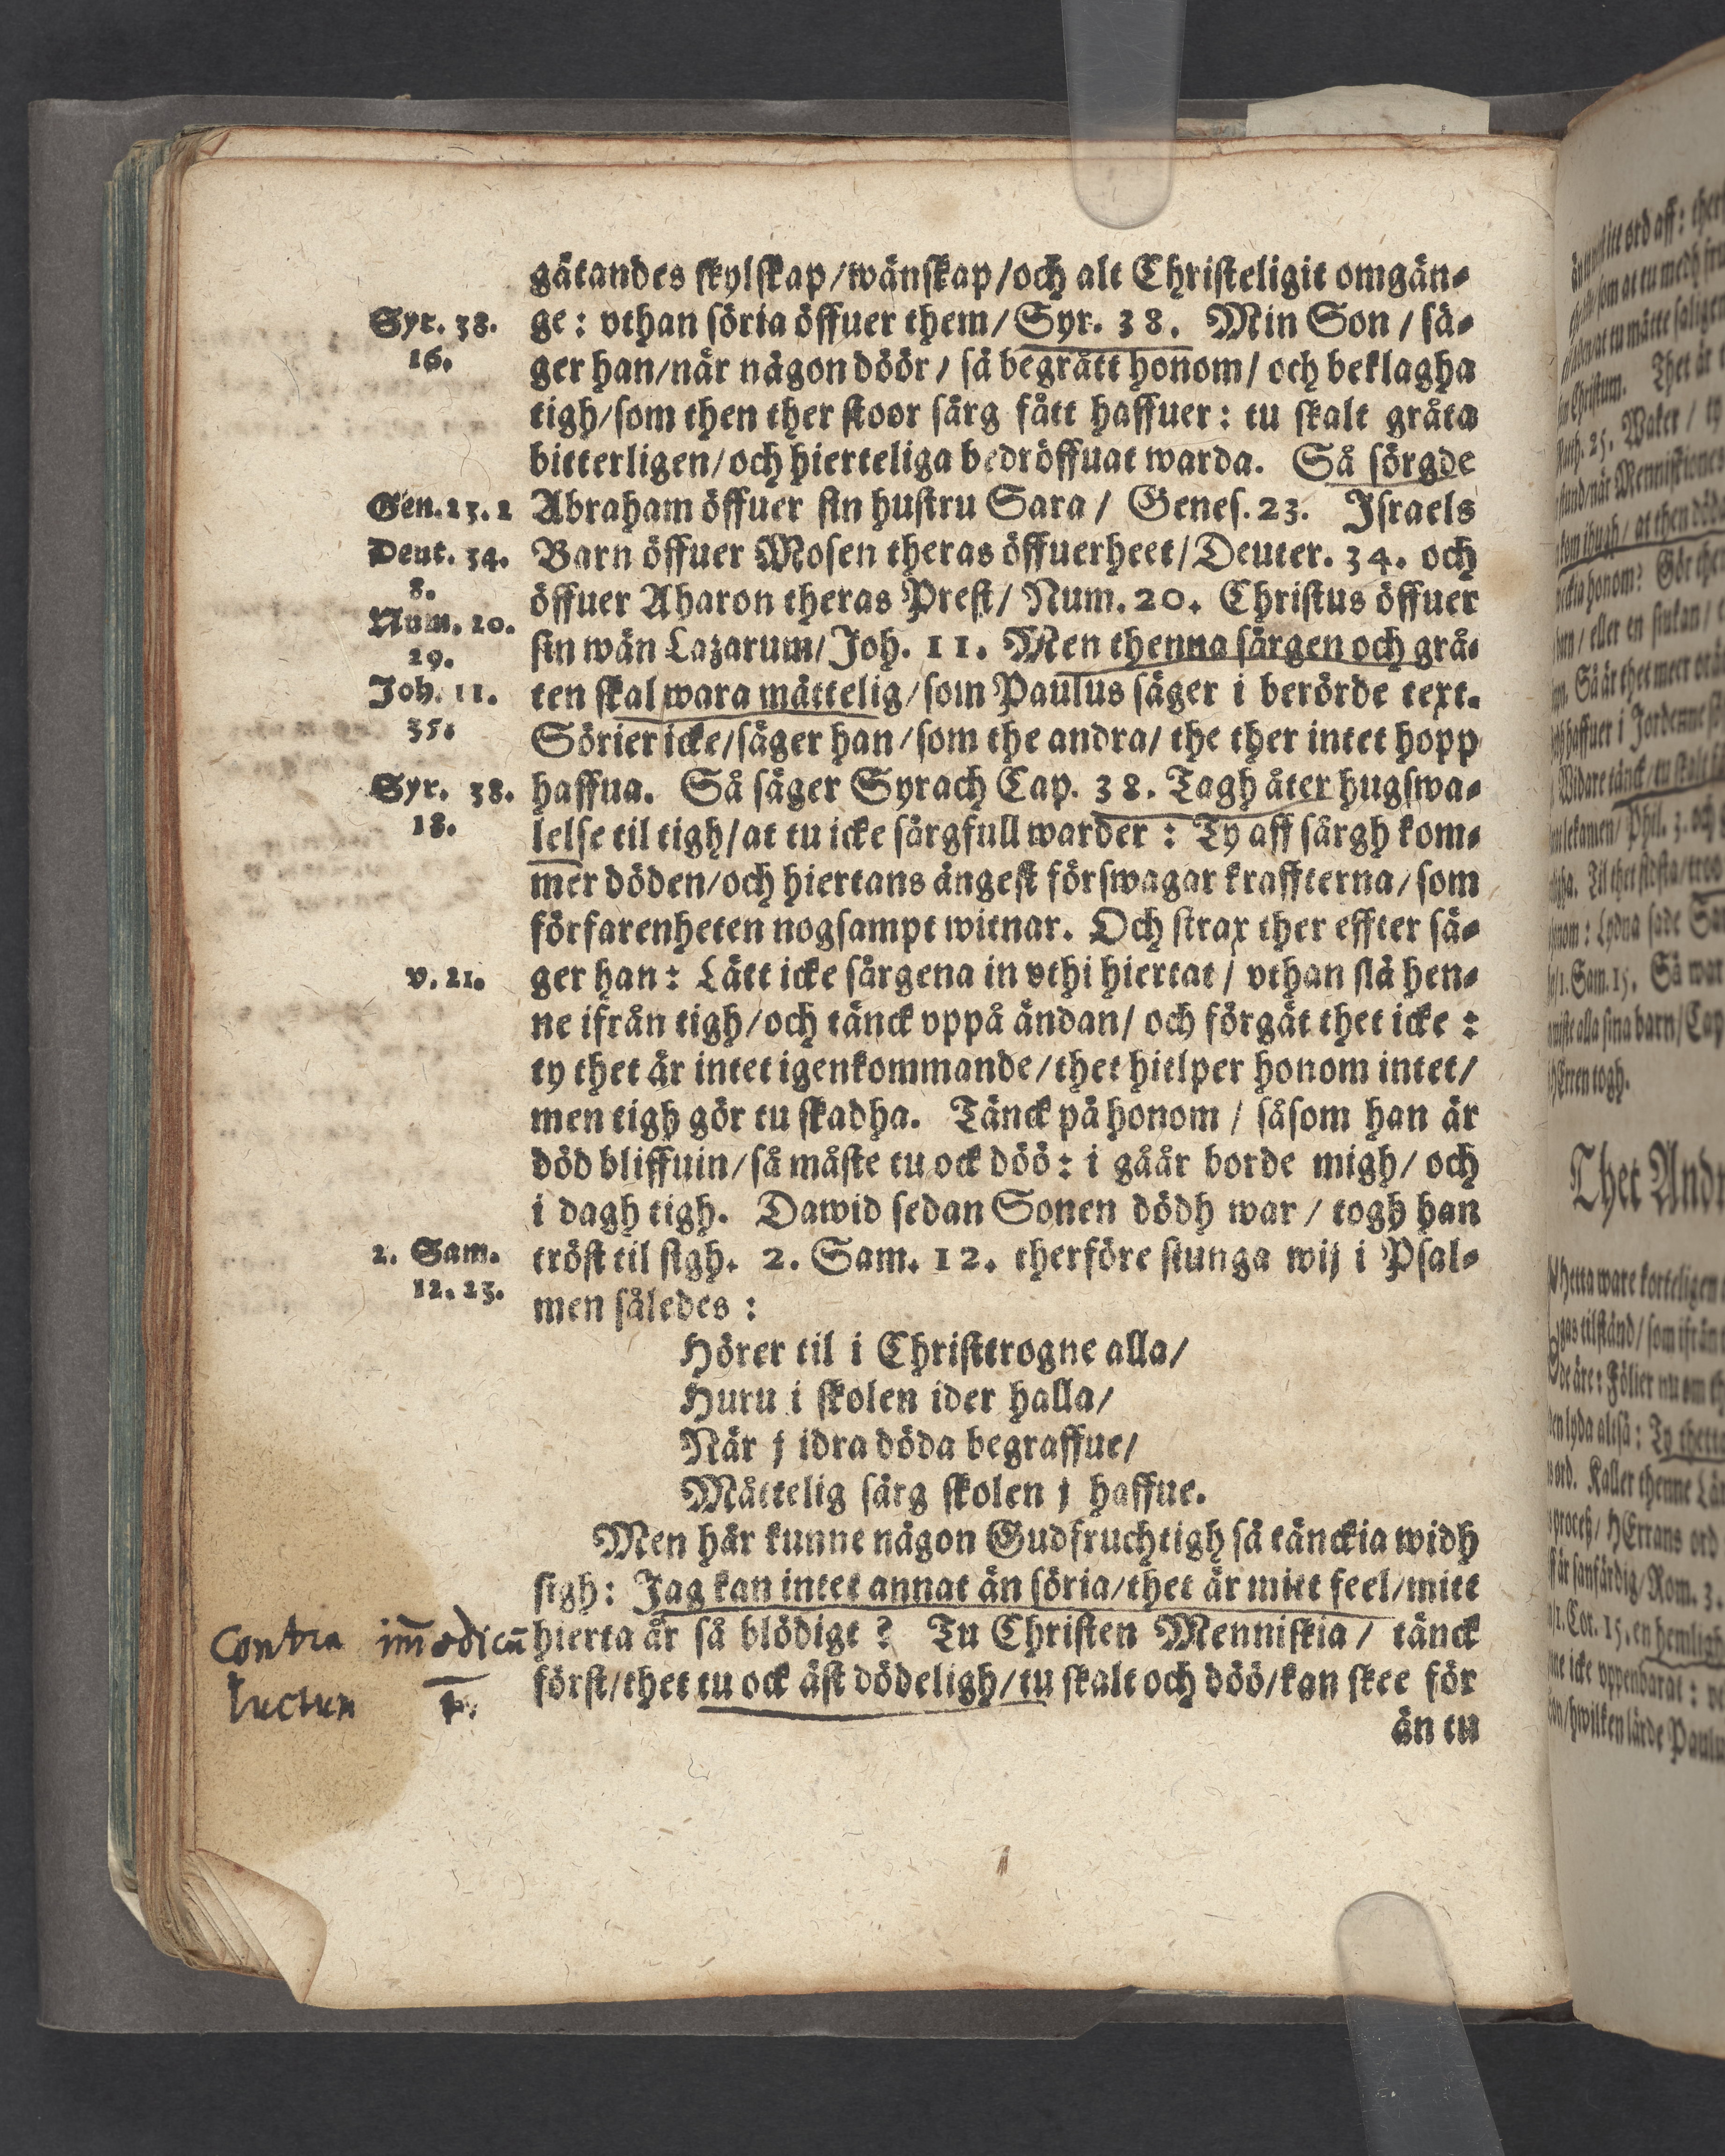 gätandes skylskap/wänskap/och alt Christeligit omgän-
Syr. 38.
16.
ge: vthan söria öffuer them/Syr. 38. Min Son/sä-
ger han/när någon döör/ så begrått honom/ och beklagha
tigh/som then ther stoor sårg fått haffuer: tu skalt gråta
bitterligen/och hierteliga bedröffuat warda. Så sörgde
Gen. 23. 2
Abraham öffuer sin hustru Sara/ Genes. 23. Israels
Deut. 34.
8.
Barn öffuer Mosen theras öffuerheet/Deuter. 34. och
öffuer Aharon theras Prest/ Num. 20. Christus öffuer
Num. 20.
29.
sin wän Lazarum/Joh. 11. Men thenna sårgen och grå-
Joh. 11.
35.
ten skal wara måttelig/som Paulus säger i berörde text.
Sörier icke/säger han/som the andra/ the ther intet hopp
Syr. 38.
18.
haffua. Så säger Syrach Cap. 38. Tagh åter hugswa-
lelse til tigh/at tu icke sårgfull warder: Ty aff sårgh kom-
mer döden/och hiertans ångest förswagar kraffterna/som
förfarenheten nogsampt witnar. Och strax ther effter sä-
v. 21.
ger han: Lått icke sårgena in vthi hiertat/ vthan slå hen-
ne ifrån tigh/och tänck vppå ändan/ och förgät thet icke:
ty thet är intet igenkommande/thet hielper honom intet/
men tigh gör tu skadha. Tänck på honom/ såsom han är
död bliffuin/så måste tu ock döö: i gåår borde migh/ och
i dagh tigh. Dawid sedan Sonen dödh war/ togh han
2. Sam.
12. 23.
tröst til sigh. 2. Sam. 12. therföre siunga wij i Psal-
men således:
Hörer til i Christtrogne alla/
Huru i skolen ider halla/
När j idra döda begraffue/
Måttelig sårg skolen j haffue.
Men här kunne någon Gudfruchtigh så tänckia widh
sigh: Jag kan intet annat än söria/thet är mitt feel/mitt
Contra im̄odicū
hierta är så blödigt? Tu Christen Menniskia/ tänck
luctum 1.
först/thet tu ock äst dödeligh/tu skalt och döö/kan skee för
än tu